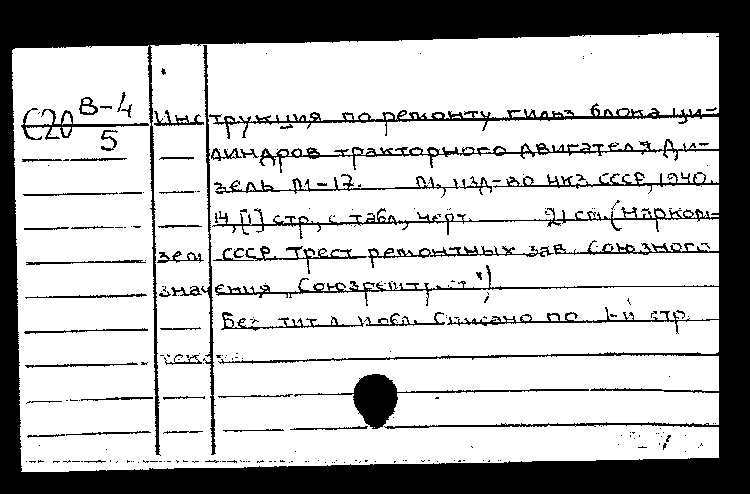 С20 В-4/5
Инструкция по ремонту гильз блока ци-
линдров тракторного двигателя Ди-
зель М-17. М., изд-во НКЗ СССР, 1940.
14, [1] стр., с табл., черт. 21 см. (Нарком-
зем СССР. Трест ремонтных зав. Союзного
значения "Союзремтрест")
Без тит. л. и обл. Списано по 1-й стр.
текста.